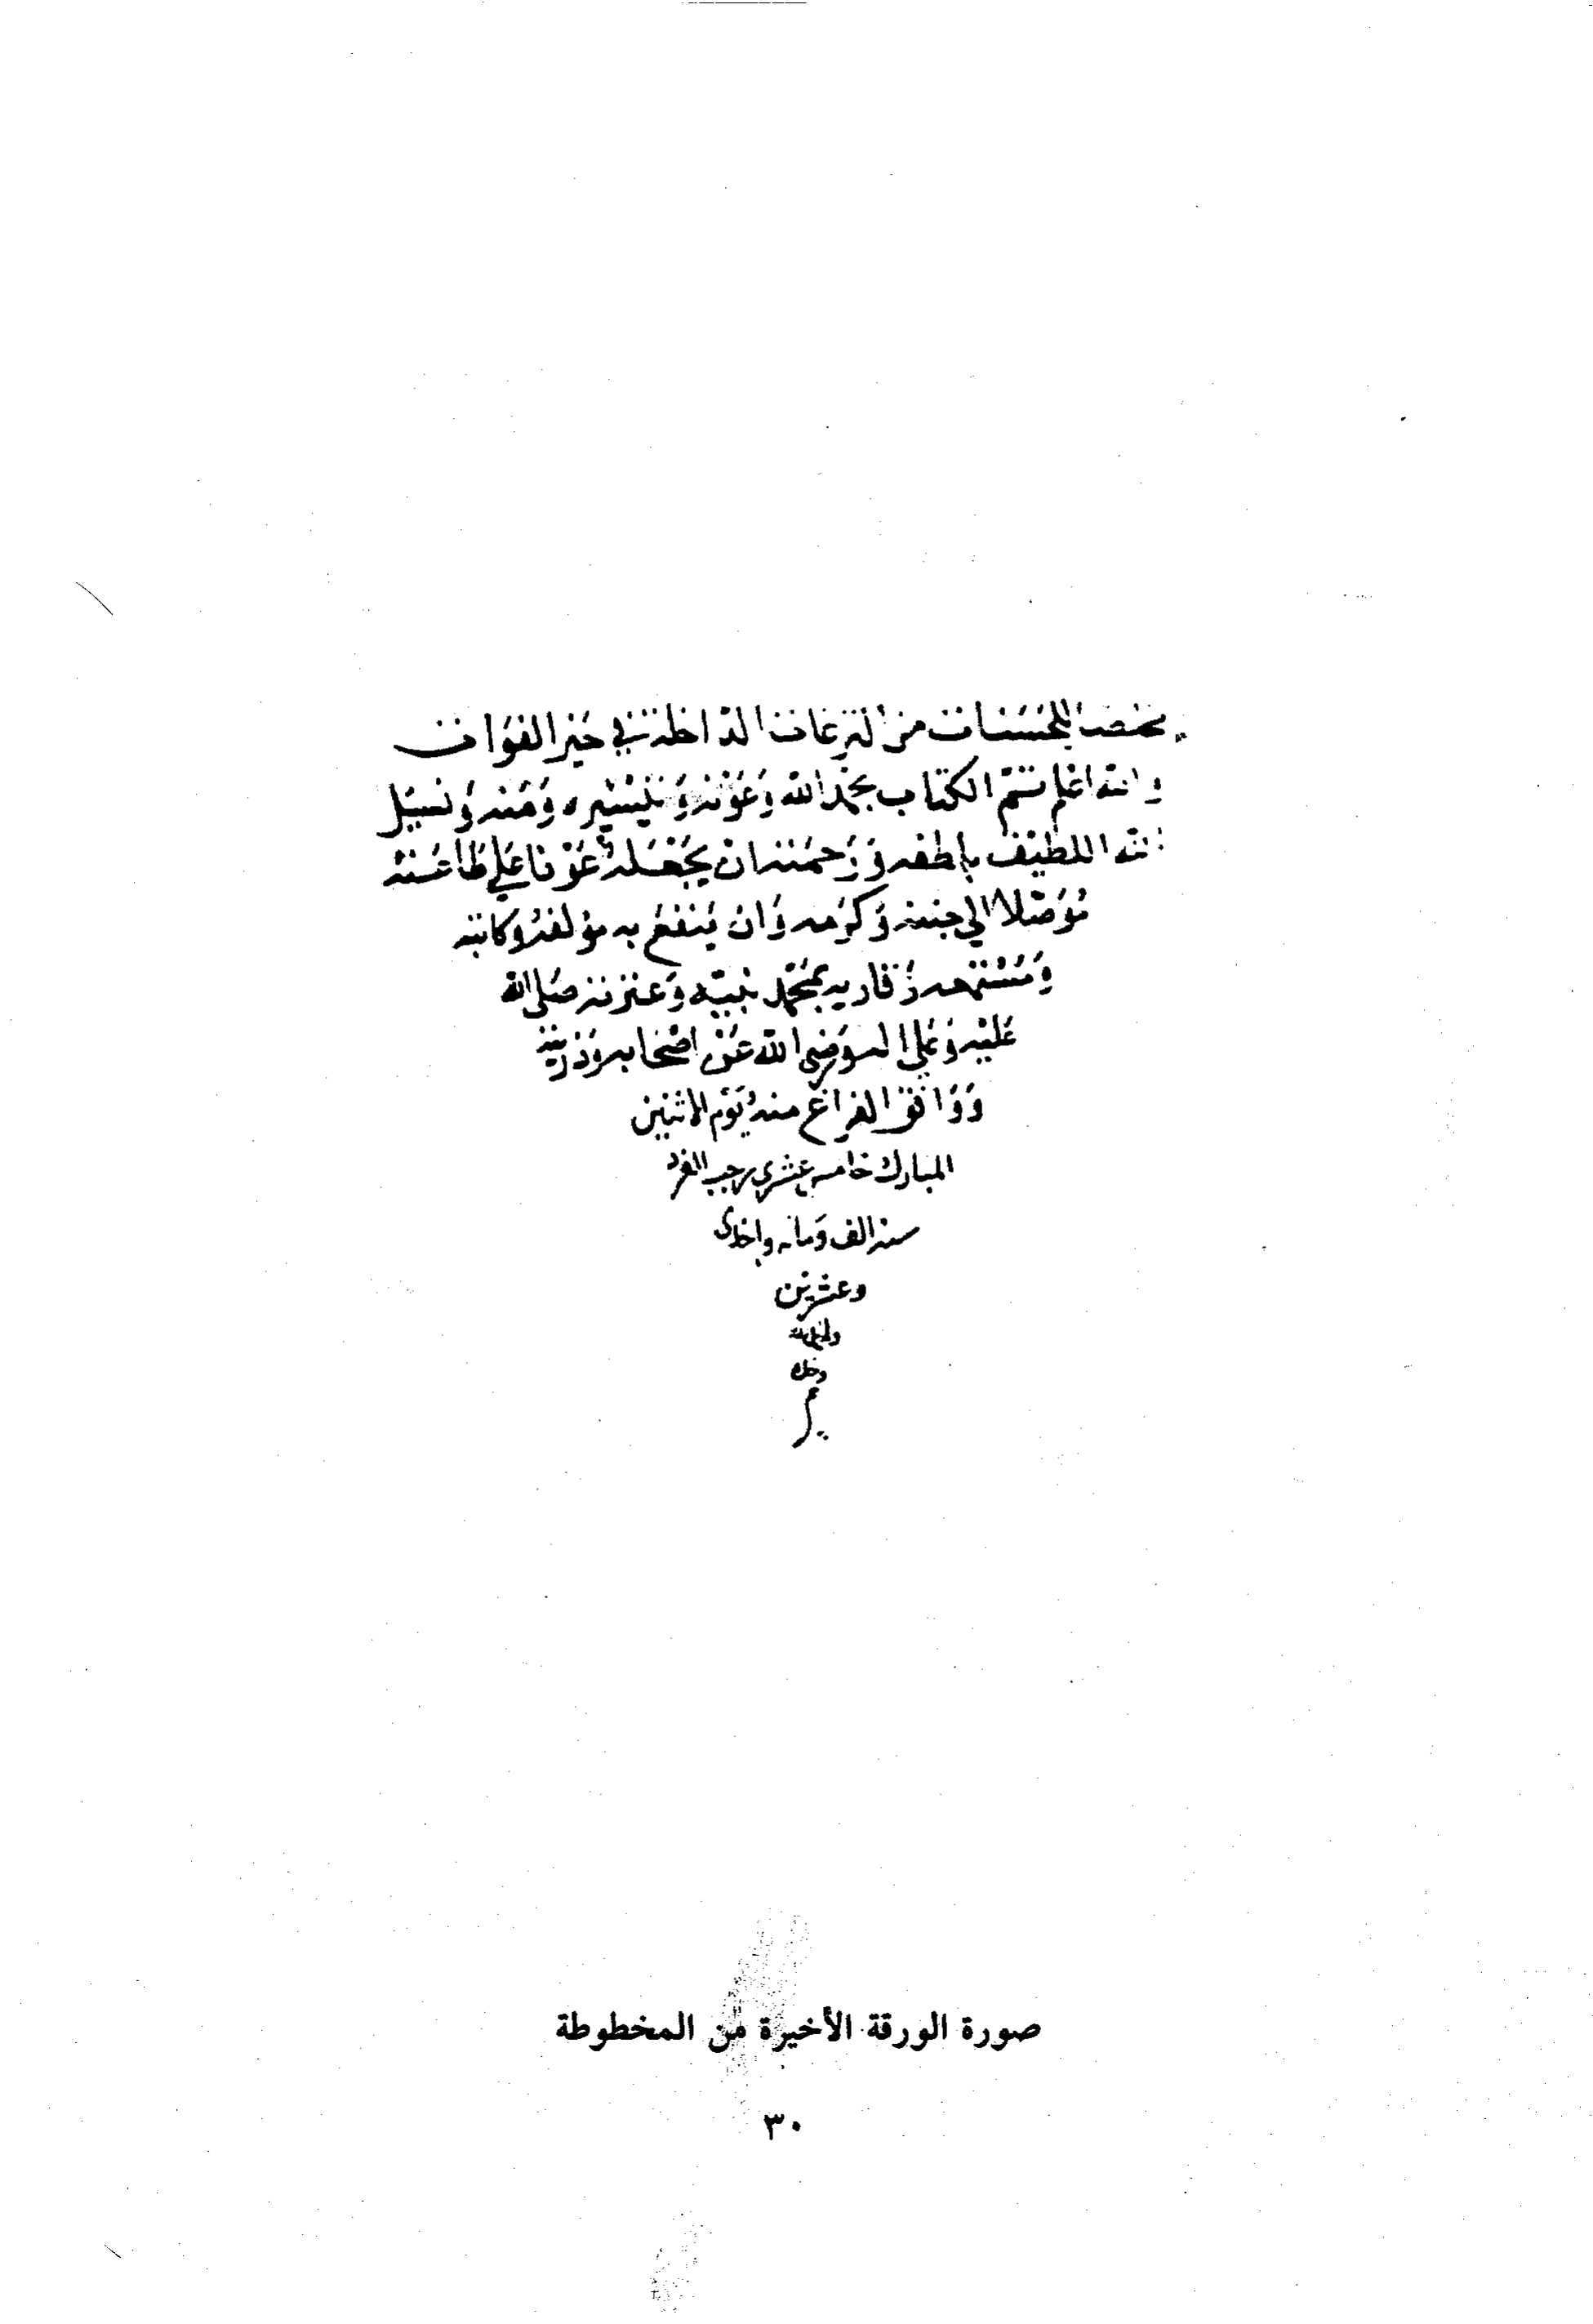 المحسنات من النزعات الداخلة في حيز الفوات
والله اعلم تم الكتاب بحمد الله وَعَوْنه وَتيْسِيْره وَمَنه وَنسيَل
الله اللطيف بلطفه وَرَحمَته ان يجْعَله عَوْنا عَلي طَاعَته
مُوَصلا الي جنته وَكرَمه وَانْ يَنفعَ به مؤلفهُ وَكاتبه
وَقاريه بمُحَمَّد نبيّه وَعترته صَلى الله
عَليْه وَعَلي اله وَرضي الله عَنْ اصْحَابه وَذريته
وَوَافَقَ الفراغ منه يَوْم الاثنين
المبارك خامس عشري رجب الفرد
سنه الف وَمائه واحدى
وعشرين
والحمد لله
وحده
صورة الورقة الأخيرة من المخطوطة
٣٠